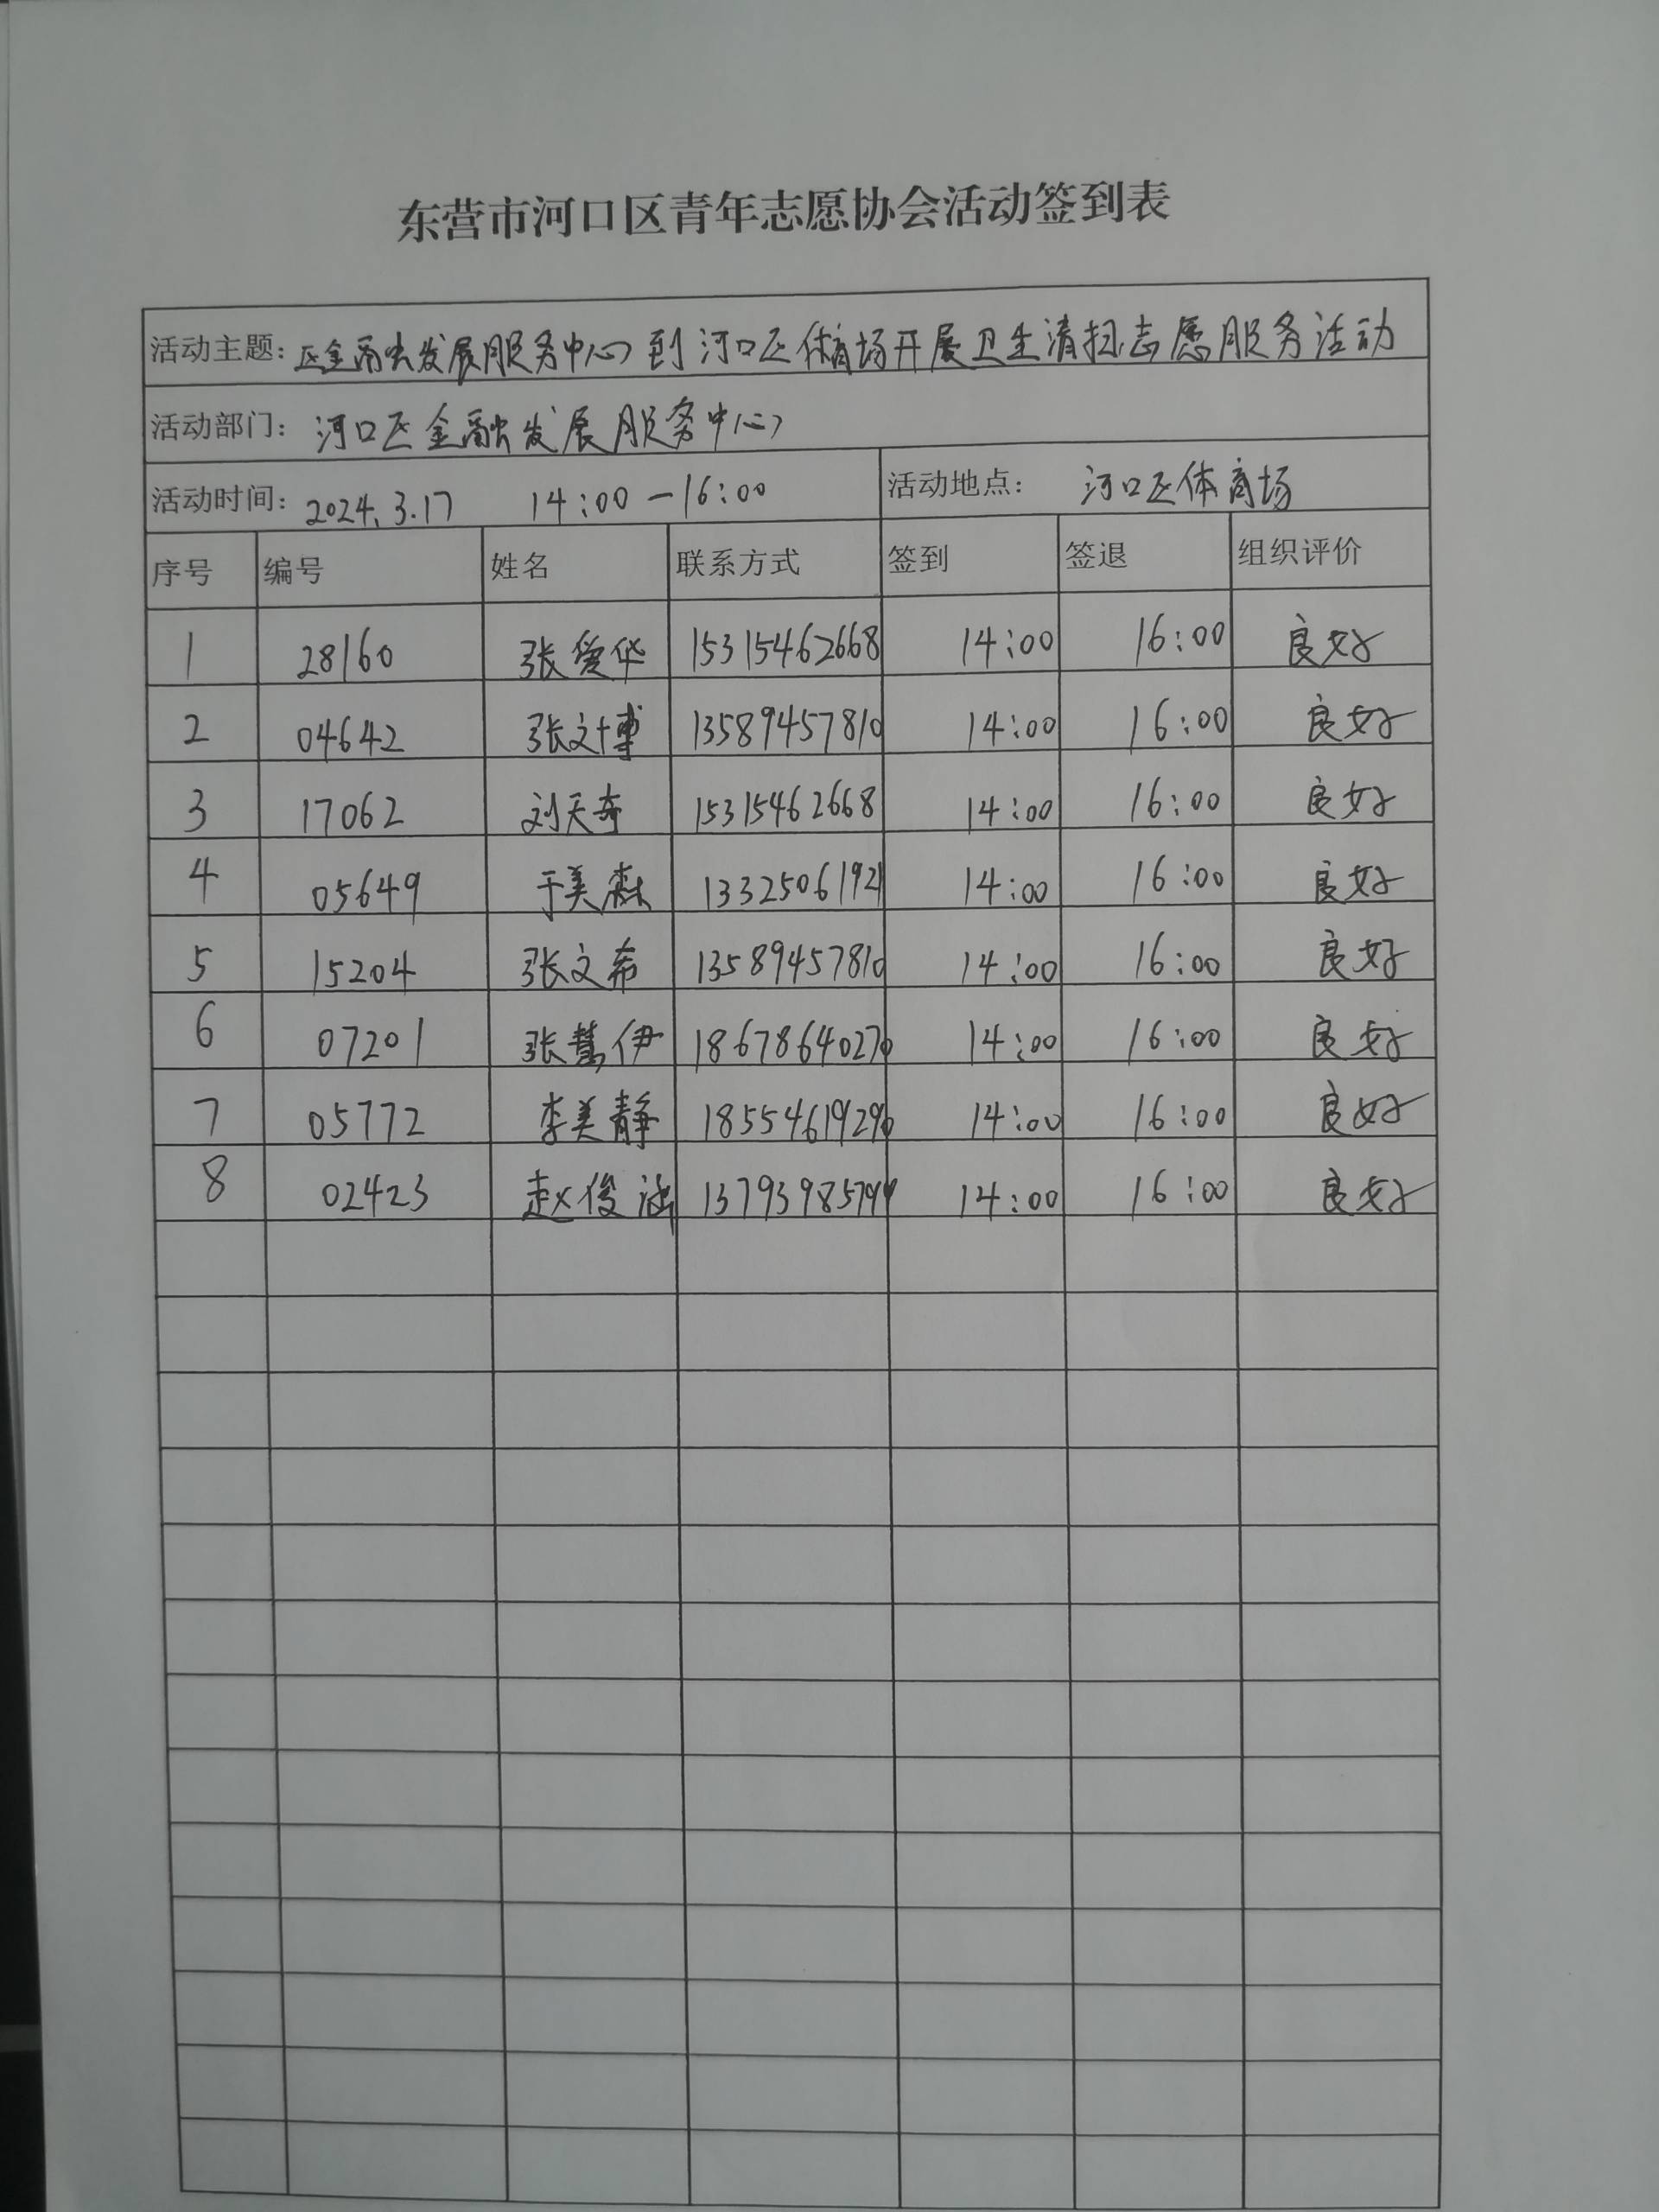 东营市河口区青年志愿协会活动签到表
活动主题: 区金融发展服务中心到河口区体育场开展卫生清扫志愿服务活动
活动部门: 河口区金融发展服务中心
活动时间: 2024.3.17 14:00-16:00 活动地点: 河口区体育场
序号 编号 姓名 联系方式 签到 签退 组织评价
1 28160 张爱华 15315462668 14:00 16:00 良好
2 04642 张文博 13589457810 14:00 16:00 良好
3 17062 刘天奇 15315462668 14:00 16:00 良好
4 05649 于美森 13325061921 14:00 16:00 良好
5 15204 张文希 13589457810 14:00 16:00 良好
6 07201 张慧伊 18678640270 14:00 16:00 良好
7 05772 李美静 18554619290 14:00 16:00 良好
8 02423 赵俊涵 14:00 16:00 良好